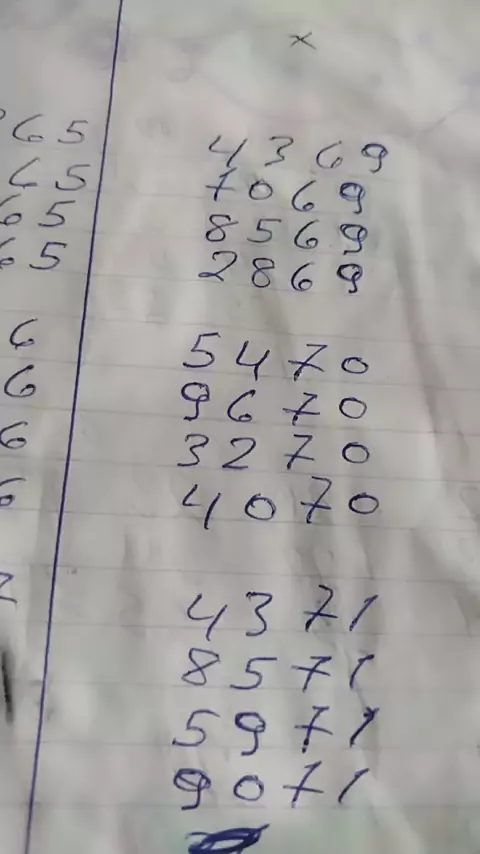 x
65
65
65
65
6
6
6
6
4369
7069
8569
2869
5470
9670
3270
4070
4371
8571
5971
9071